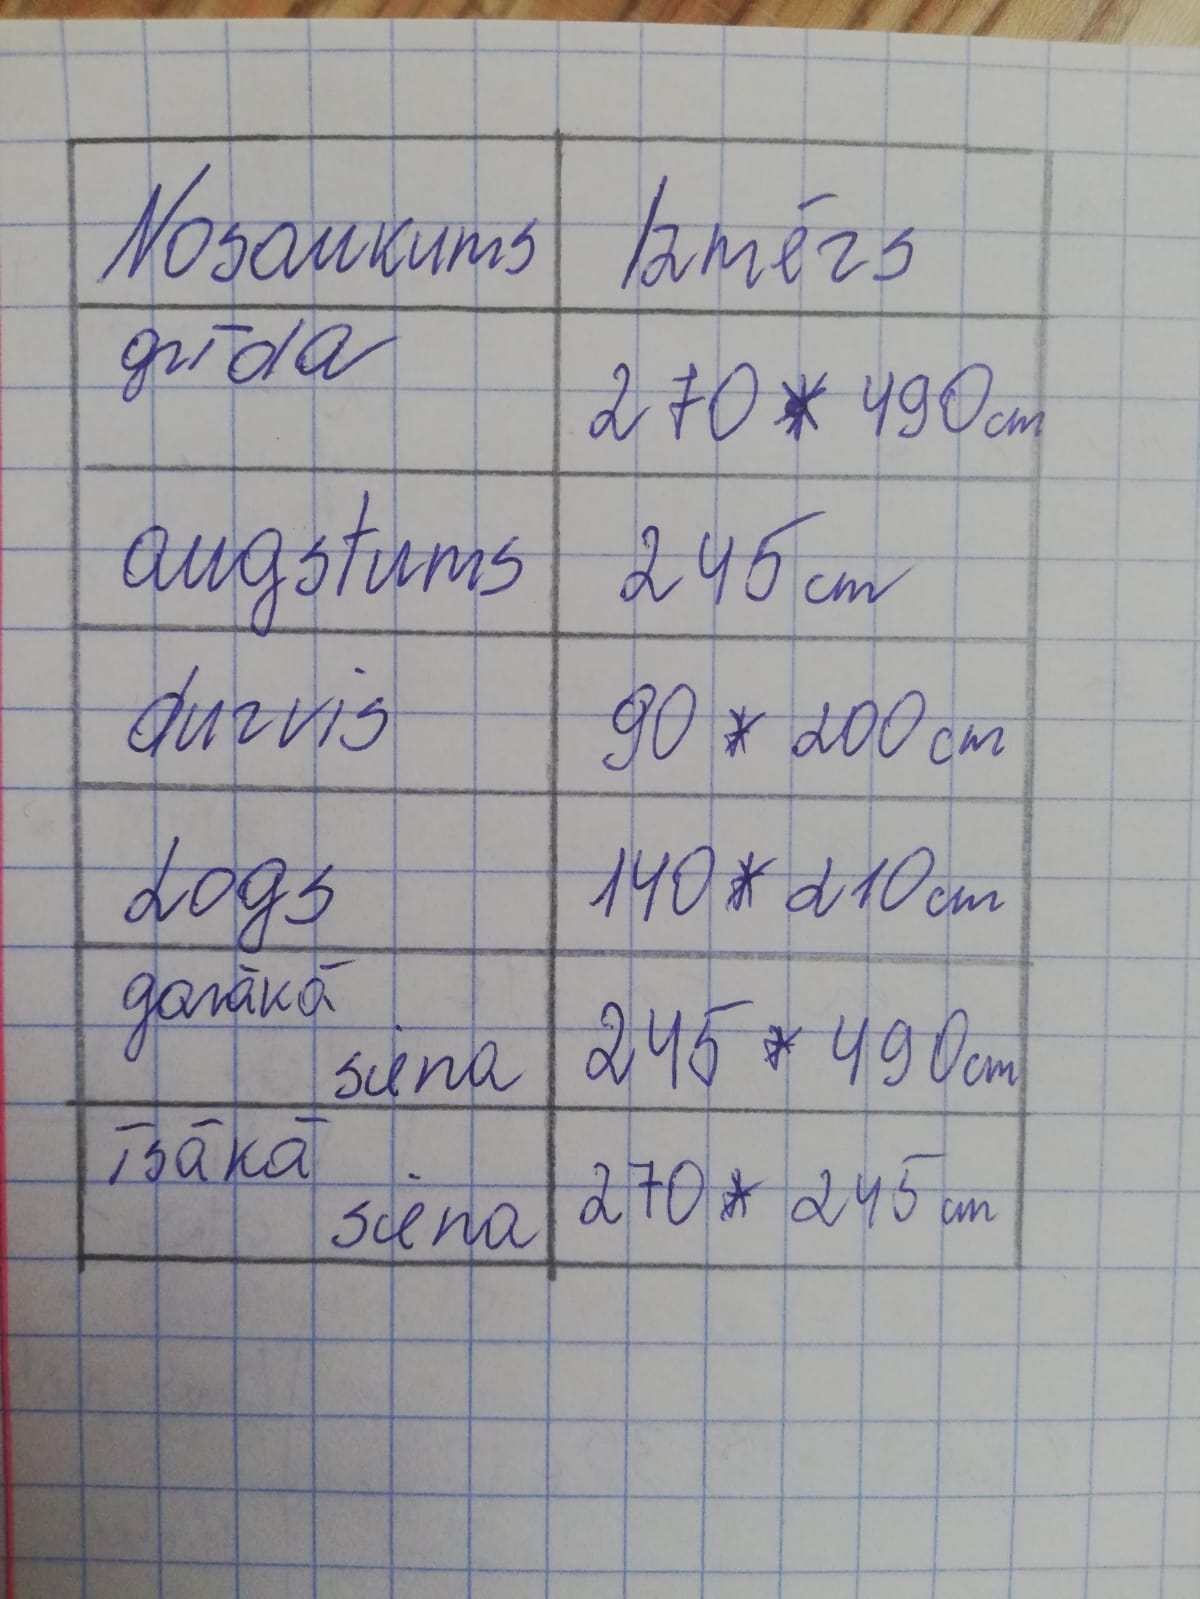 Nosaukums Izmērs
grīda
270 * 490cm
augstums 245cm
durvis 90 * 200cm
Logs 140 * 210cm
garākā
siena 245 * 490cm
īsākā
siena 270 * 245cm